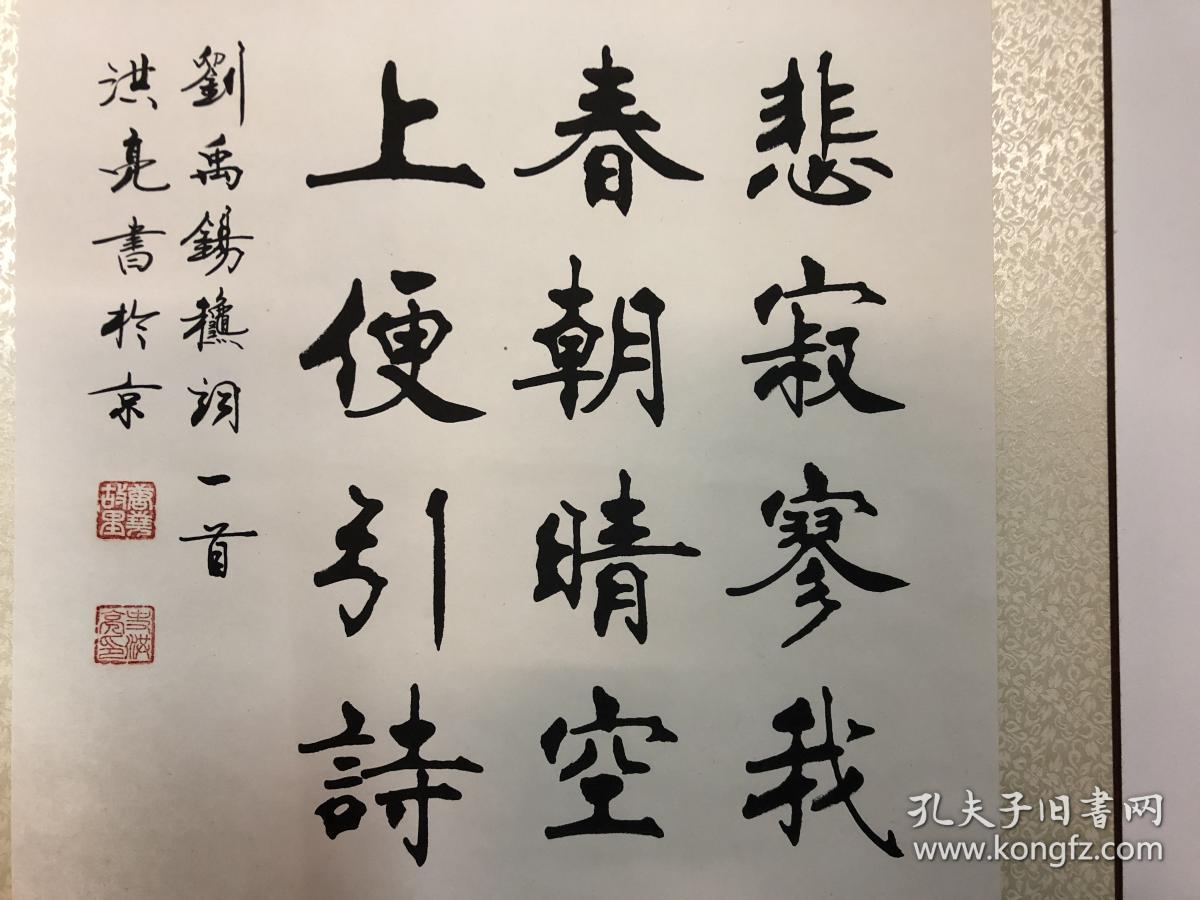 悲寂寥我
春朝晴空
上便引詩
劉禹錫穐詞一首
洪亮書於京
唐堯故里
史洪亮印
孔夫子旧书网
www.kongfz.com